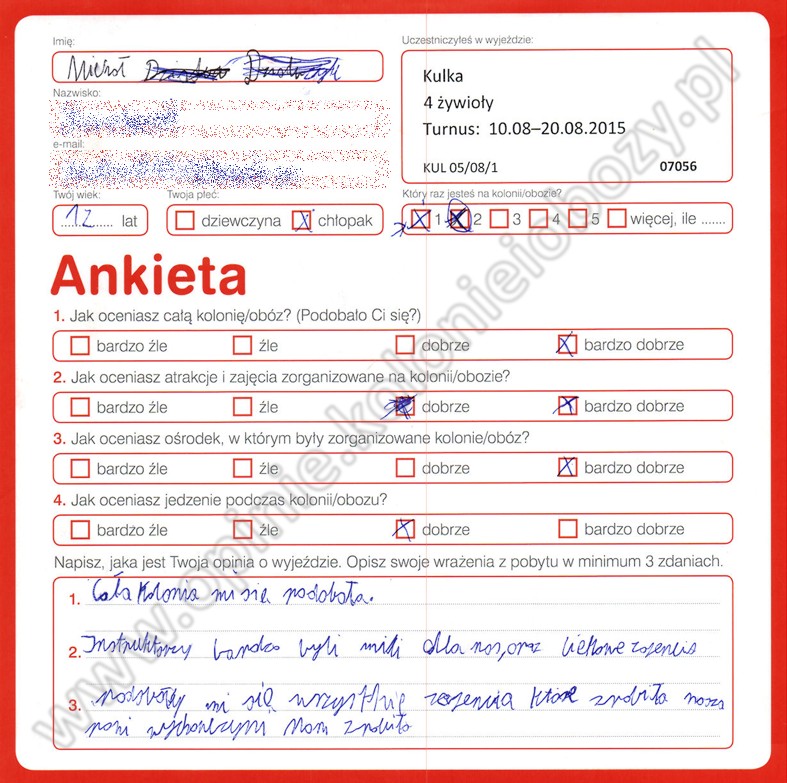 Imię:
Michał
Nazwisko:
e-mail:
Twój wiek:
12 lat
Twoja płeć:
dziewczyna chłopak
Uczestniczyłeś w wyjeździe:
Kulka
4 żywioły
Turnus: 10.08–20.08.2015
KUL 05/08/1 07056
Który raz jesteś na kolonii/obozie?
1 2 3 4 5 więcej, ile .......
Ankieta
1. Jak oceniasz całą kolonię/obóz? (Podobało Ci się?)
bardzo źle źle dobrze bardzo dobrze
2. Jak oceniasz atrakcje i zajęcia zorganizowane na kolonii/obozie?
bardzo źle źle dobrze bardzo dobrze
3. Jak oceniasz ośrodek, w którym były zorganizowane kolonie/obóz?
bardzo źle źle dobrze bardzo dobrze
4. Jak oceniasz jedzenie podczas kolonii/obozu?
bardzo źle źle dobrze bardzo dobrze
Napisz, jaka jest Twoja opinia o wyjeździe. Opisz swoje wrażenia z pobytu w minimum 3 zdaniach.
1. Cała kolonia mi się podobała.
2. Instruktorzy bardzo byli mili dla nas, oraz
3. podobały mi się wszystkie które zrobiła nasza
pani nam zrobiła
www.opinie.kolonieiobozy.pl